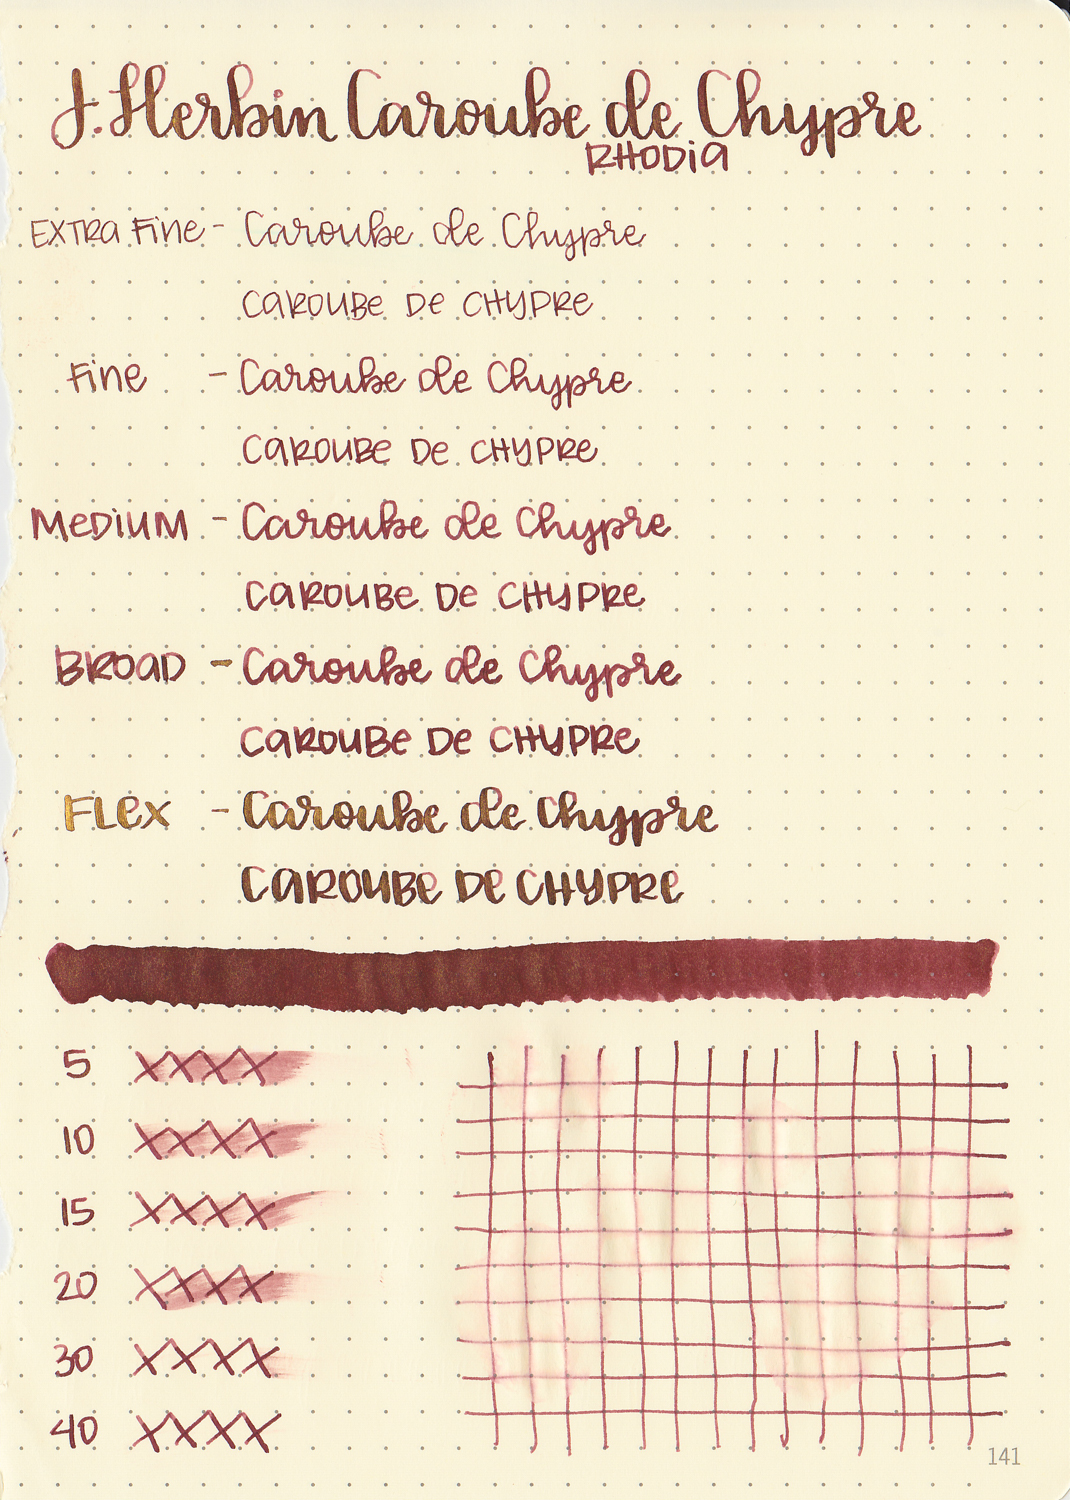 J. Herbin Caroube de Chypre
RHODIA
EXTRA Fine - Caroube de Chypre
CAROUBE DE CHYPRE
Fine - Caroube de Chypre
CAROUBE DE CHYPRE
MeDiUM - Caroube de Chypre
CAROUBE DE CHYPRE
BROAD - Caroube de Chypre
CAROUBE DE CHYPRE
FLex - Caroube de Chypre
CAROUBE DE CHYPRE
5 XXXX
10 XXXX
15 XXXX
20 XXXX
30 XXXX
40 XXXX
141